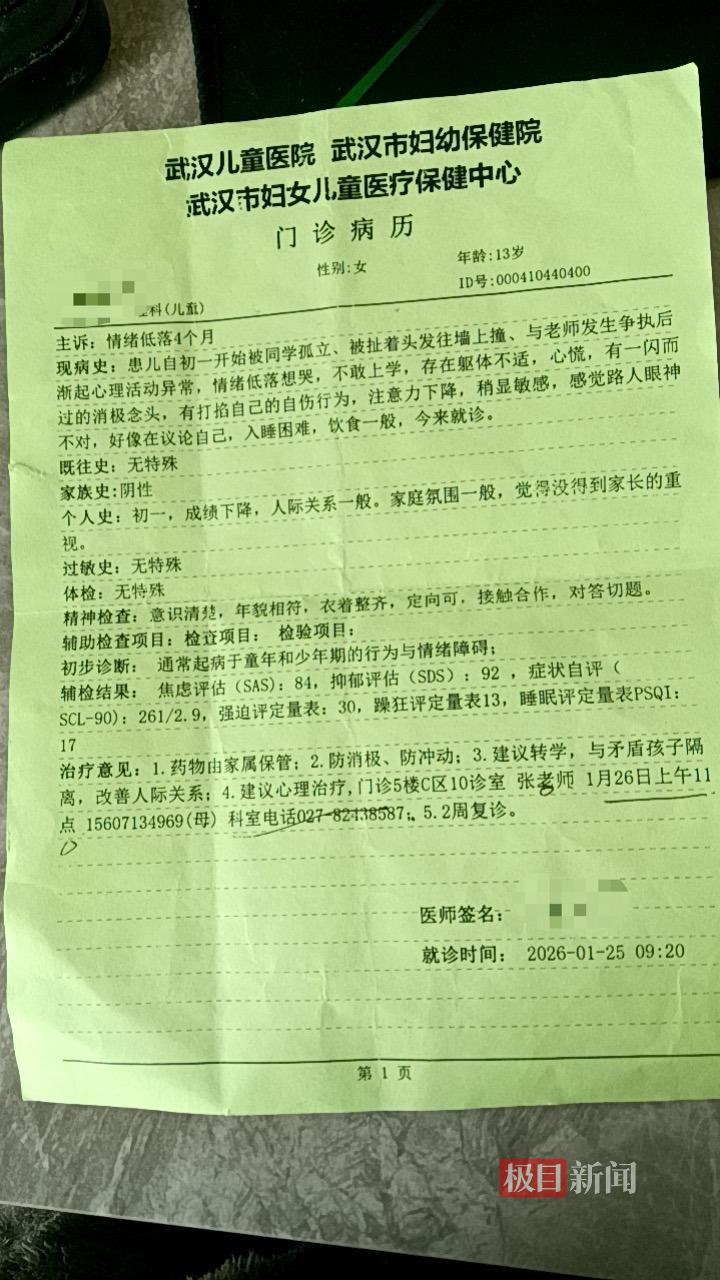 武汉儿童医院 武汉市妇幼保健院
武汉市妇女儿童医疗保健中心
门诊病历
性别:女
年龄:13岁
科(儿童)
ID号:000410440400
主诉: 情绪低落4个月
现病史: 患儿自初一开始被同学孤立、被扯着头发往墙上撞、与老师发生争执后
渐起心理活动异常, 情绪低落想哭, 不敢上学, 存在躯体不适, 心慌, 有一闪而
过的消极念头, 有打掐自己的自伤行为, 注意力下降, 稍显敏感, 感觉路人眼神
不对, 好像在议论自己, 入睡困难, 饮食一般, 今来就诊。
既往史: 无特殊
家族史:阴性
个人史: 初一, 成绩下降, 人际关系一般。家庭氛围一般, 觉得没得到家长的重
视。
过敏史: 无特殊
体检: 无特殊
精神检查: 意识清楚, 年貌相符, 衣着整齐, 定向可, 接触合作, 对答切题。
辅助检查项目: 检查项目: 检验项目:
初步诊断: 通常起病于童年和少年期的行为与情绪障碍;
辅检结果: 焦虑评估 (SAS): 84, 抑郁评估 (SDS) : 92 , 症状自评 (
SCL-90): 261/2.9, 强迫评定量表: 30, 躁狂评定量表13, 睡眠评定量表PSQI:
17
治疗意见: 1.药物由家属保管; 2.防消极、防冲动; 3.建议转学, 与矛盾孩子隔
离, 改善人际关系; 4.建议心理治疗, 门诊5楼C区10诊室 张老师 1月26日上午11
点 15607134969(母) 科室电话027-82438587; 5.2周复诊。
医师签名:
就诊时间: 2026-01-25 09:20
第 1 页
极目新闻